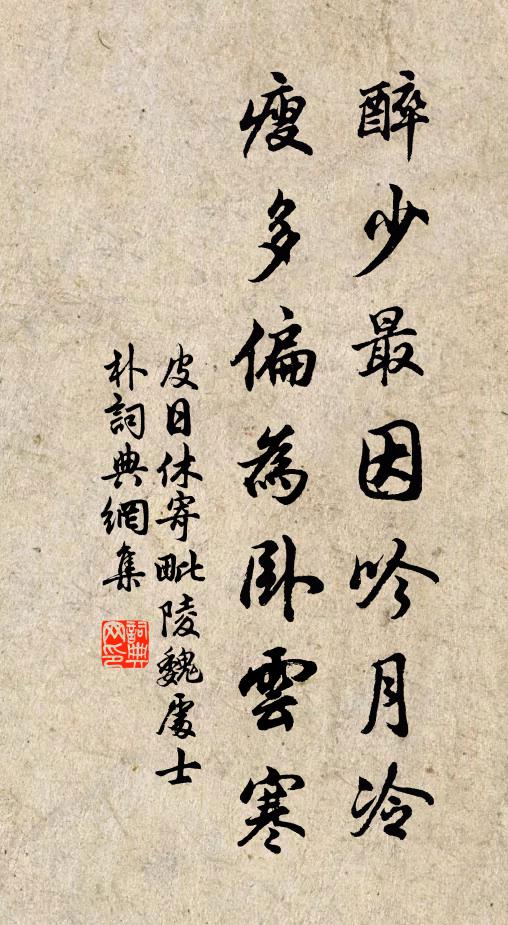 醉少最因吟月冷
瘦多偏為臥雲寒
皮日休寄毗陵魏處士
朴詞典網集
詞典网印